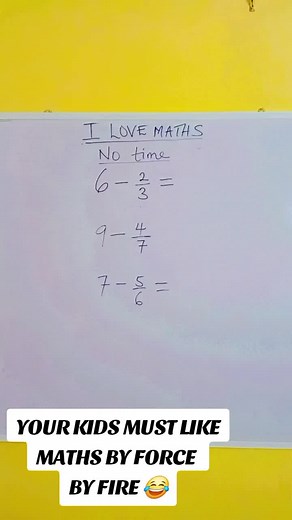 I LOVE MATHS
No time
6 - 2/3 =
9 - 4/7
7 - 5/6 =
YOUR KIDS MUST LIKE
MATHS BY FORCE
BY FIRE 😂